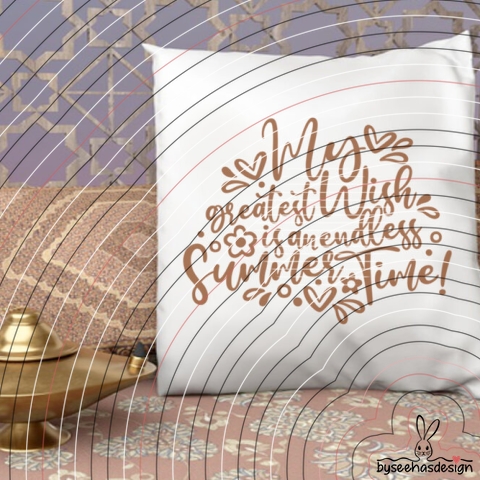 My
greatest Wish
is an endless
Summer Time!
byseehasdesign